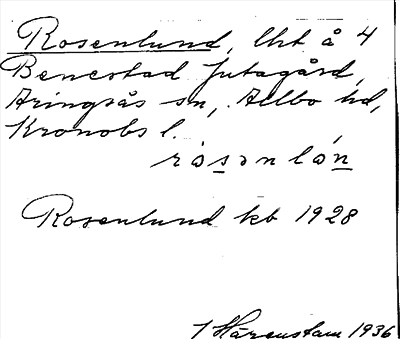 Rosenlund, lht å 4
Benestad Jutagård,
Aringsås sn, Allbo hd,
Kronobs l.
rosənlón
Rosenlund kb 1928
Härenstam 1936